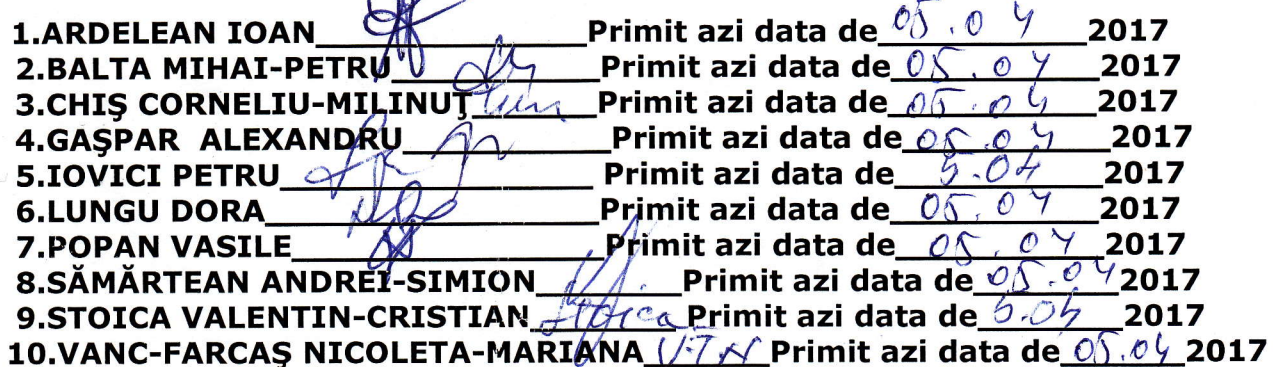 1.ARDELEAN IOAN Primit azi data de 05.04 2017
2.BALTA MIHAI-PETRU Primit azi data de 05.04 2017
3.CHIŞ CORNELIU-MILINUŢ Primit azi data de 05.04 2017
4.GAŞPAR ALEXANDRU Primit azi data de 05.04 2017
5.IOVICI PETRU Primit azi data de 5.04 2017
6.LUNGU DORA Primit azi data de 05.04 2017
7.POPAN VASILE Primit azi data de 05.04 2017
8.SĂMĂRTEAN ANDREI-SIMION Primit azi data de 05.04 2017
9.STOICA VALENTIN-CRISTIAN Stoica Primit azi data de 5.04 2017
10.VANC-FARCAŞ NICOLETA-MARIANA Primit azi data de 05.04 2017